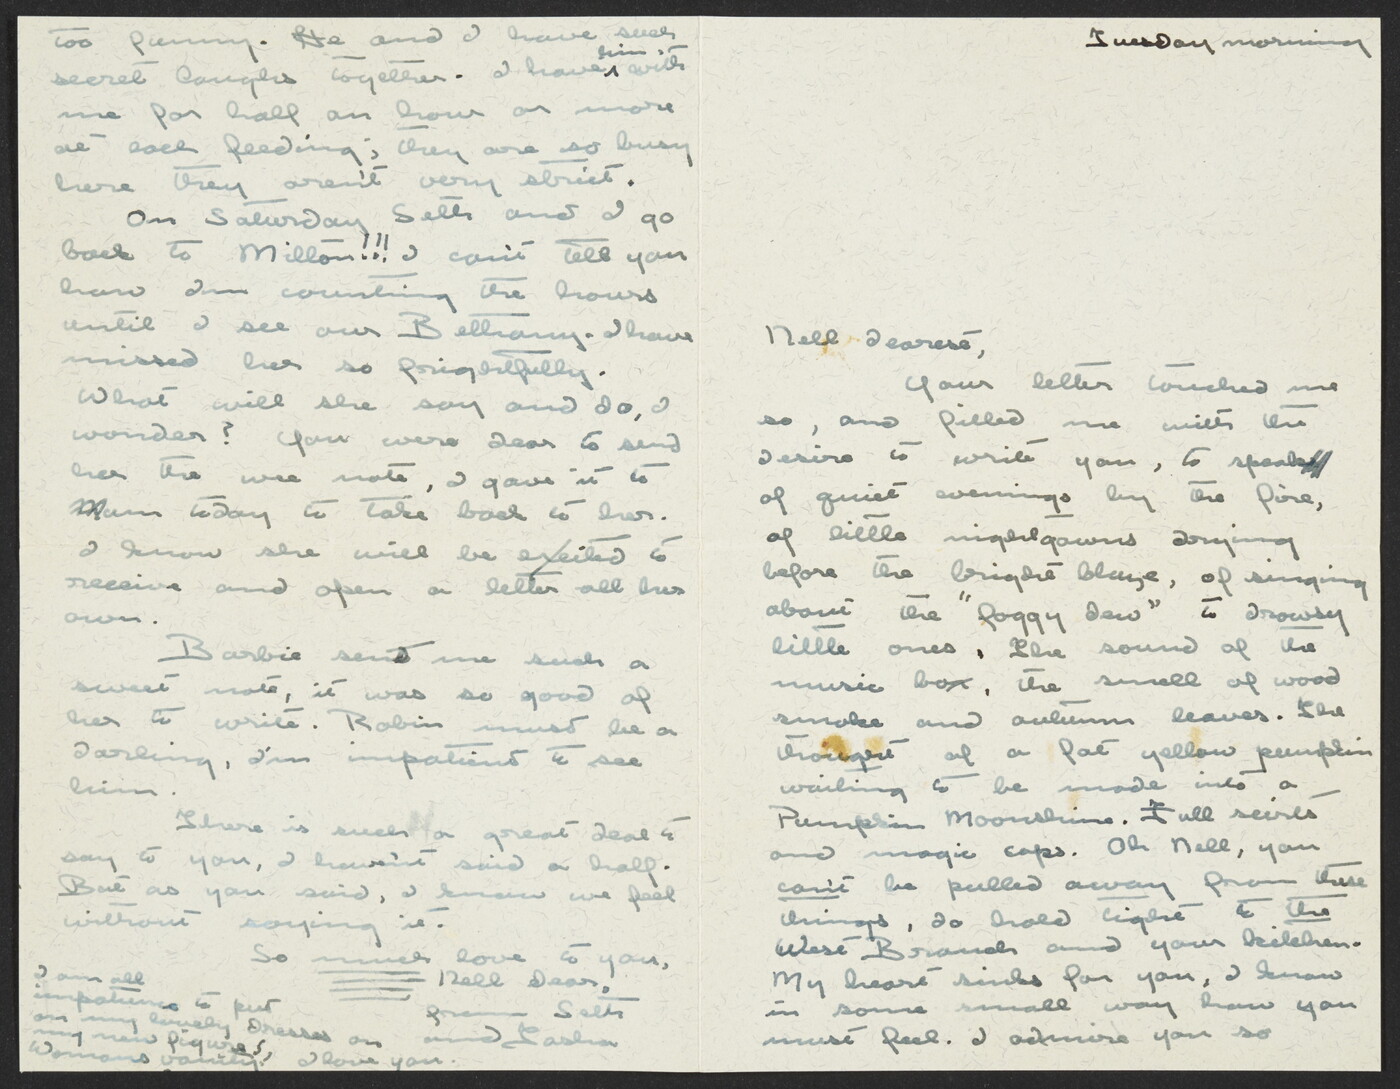 Tuesday morning
Nell dearest,
Your letter touched me
so, and filled me with the
desire to write you, to speak
of quiet evenings by the fire,
of little nightgowns drying
before the bright blaze, of singing
about the "foggy dew" to drowsy
little ones. The sound of the
music box, the smell of wood
smoke and autumn leaves. The
thought of a fat yellow pumpkin
waiting to be made into a
Pumpkin Moonshine. Full skirts
and magic caps. Oh Nell, you
can't be pulled away from these
things, do hold tight to the
West Branch and your kitchen.
My heart sinks for you, I know
in some small way how you
must feel. I admire you so
too funny. He and I have such
secret laughs together. I have him with
me for half an hour or more
at each feeding; they are so busy
here they aren't very strict.
On Saturday Seth and I go
back to Milton!!! I can't tell you
how I'm counting the hours
until I see our Bethany. I have
missed her so frightfully.
What will she say and do, I
wonder? You were dear to send
her the wee note, I gave it to
Mum today to take back to her.
I know she will be excited to
receive and open a letter all her
own.
Barbie send me such a
sweet note, it was so good of
her to write. Robin must be a
darling, I'm impatient to see
him.
There is such a great deal to
say to you, I haven't said a half.
But as you said, I know we feel
without saying it.
So much love to you,
Nell dear,
from Seth
and Tasha
I am all
impatience to put
on my lovely dresses on
my new figure!
Womans vanity! I love you.